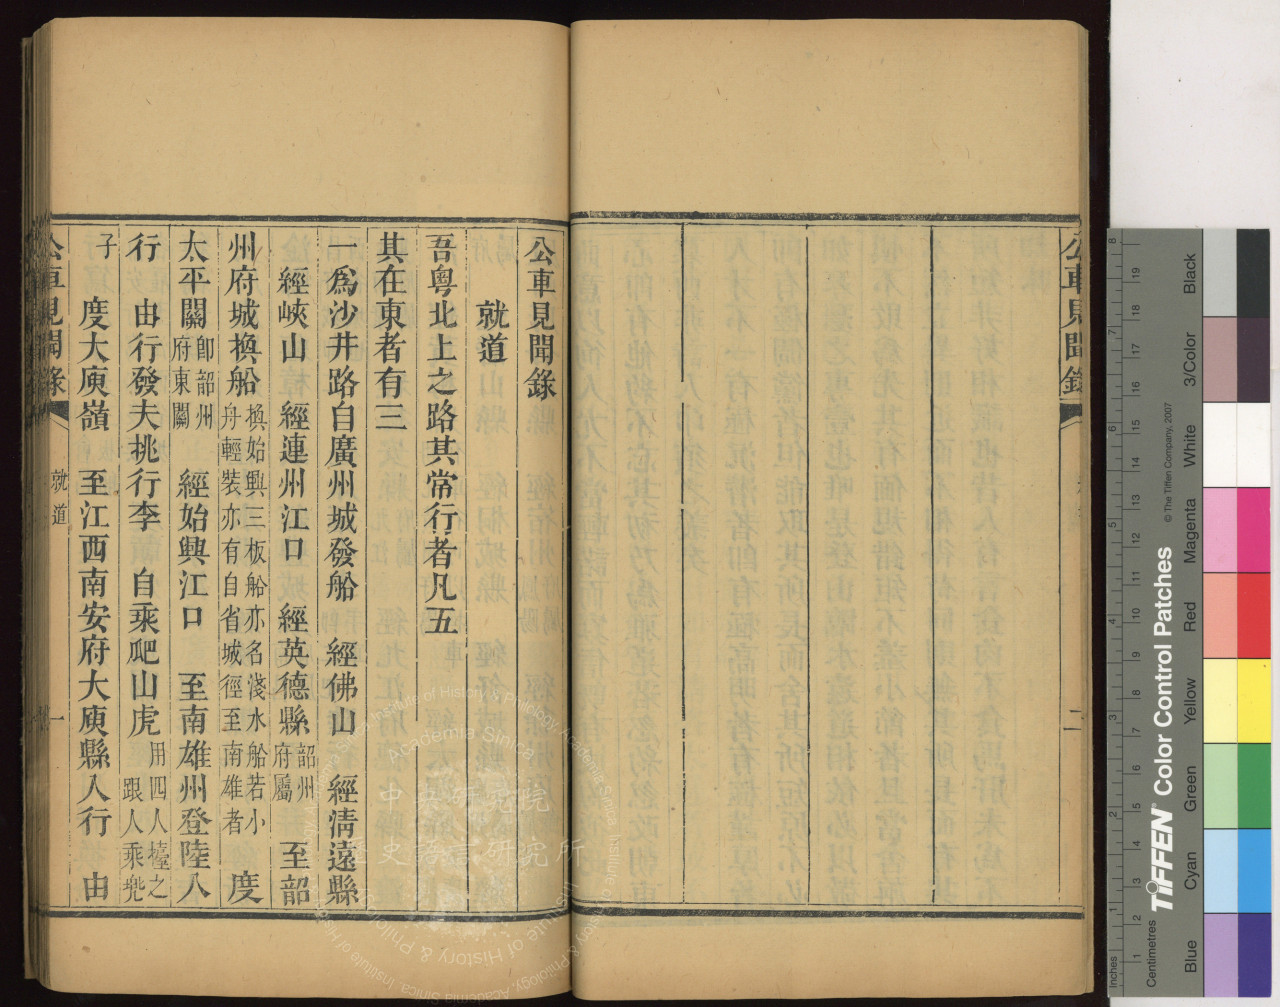 公車見聞錄
二
公車見聞錄
就道
吾粵北上之路其常行者凡五
其在東者有三
一為沙井路自廣州城發船 經佛山 經清遠縣
經峽山 經連州江口 經英德縣韶州府屬 至韶
州府城換船換始興三板船亦名淺水船若小舟輕裝亦有自省城徑至南雄者 度
太平關卽韶州府東關 經始興江口 至南雄州登陸入
行 由行發夫挑行李 自乘爬山虎用四人擡之跟人乘兠
子 度大庾嶺 至江西南安府大庾縣入行 由
公車見聞錄 就道 一
中央研究院
歷史語言研究所
Institute of History & Philology, Academia Sinica
TIFFEN® Color Control Patches
© The Tiffen Company, 2007
Inches
Centimetres
Blue
Cyan
Green
Yellow
Red
Magenta
White
3/Color
Black